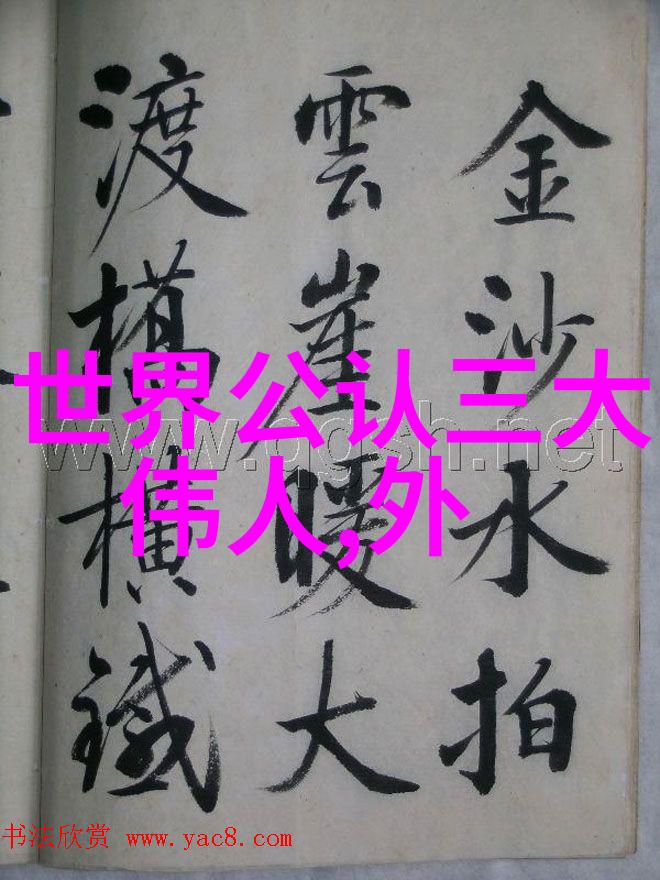 金沙水拍
雲崖暖大
渡橋橫鐵
世界公认三大
伟人,外
www.qgsh.net
书法欣赏 www.yac8.com